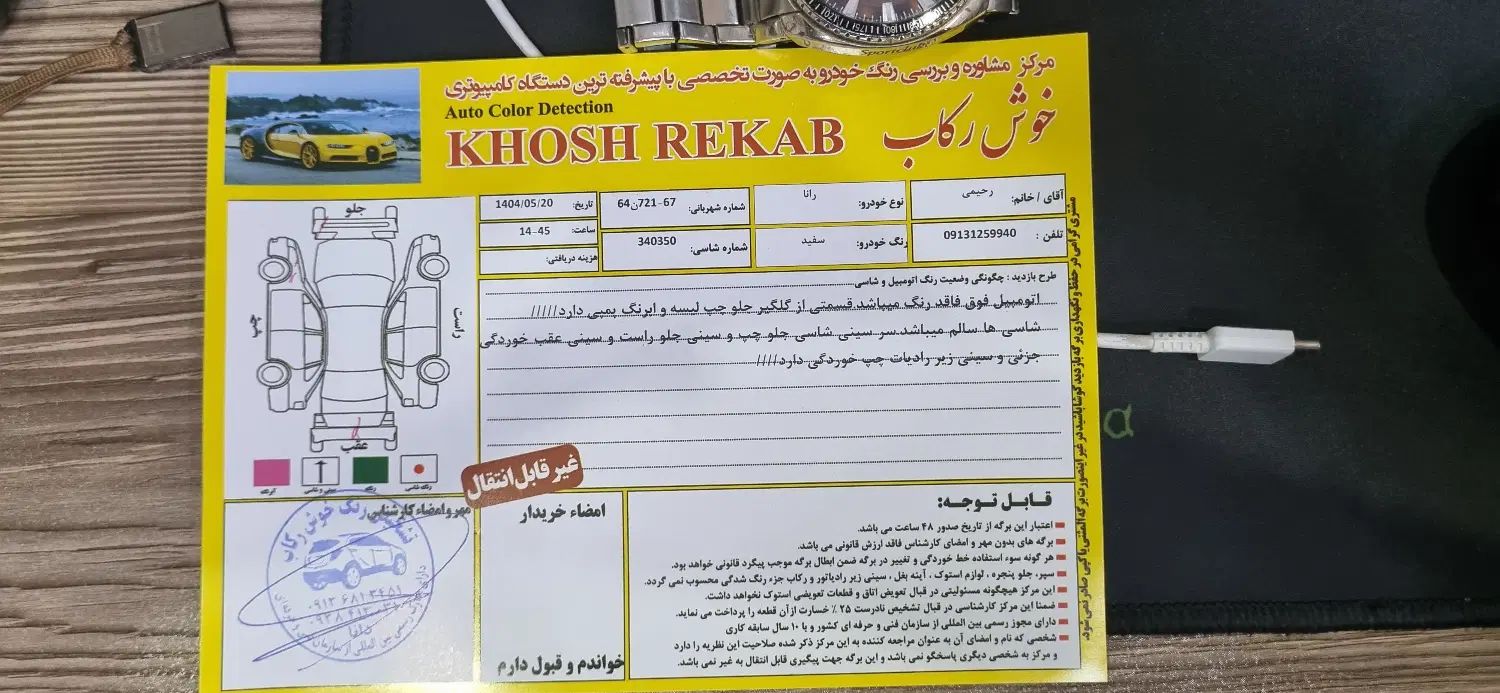 Sportclub
مرکز مشاوره و بررسی رنگ خودرو به صورت تخصصی با پیشرفته ترین دستگاه کامپیوتری
Auto Color Detection
KHOSH REKAB
خوش رکاب
آقای / خانم: رحیمی
نوع خودرو: رانا
شماره شهربانی: 67-721ن64
تاریخ: 1404/05/20
تلفن : 09131259940
رنگ خودرو: سفید
شماره شاسی: 340350
ساعت: 14-45
هزینه دریافتی:
جلو
چپ
راست
عقب
رنگ شاسی
رنگ
سینی و شاسی
آبرنگ
طرح بازدید : چگونگی وضعیت رنگ اتومبیل و شاسی
اتومبیل فوق فاقد رنگ میباشد قسمتی از گلگیر جلو چپ لیسه و ابرنگ پمپی دارد/////
شاسی ها سالم میباشد سر سینی شاسی جلو چپ و سینی جلو راست و سینی عقب خوردگی
جزئی و سینی زیر رادیات چپ خوردگی دارد////
غیر قابل انتقال
مهر و امضاء کارشناس
تشخیص رنگ خوش رکاب
۰۹۱۳ ۶۸۱ ۳۴۵۱
امضاء خریدار
خواندم و قبول دارم
قابل توجه:
اعتبار این برگه از تاریخ صدور ۴۸ ساعت می باشد.
برگه های بدون مهر و امضای کارشناس فاقد ارزش قانونی می باشد.
هر گونه سوء استفاده خط خوردگی و تغییر در برگه ضمن ابطال برگه موجب پیگرد قانونی خواهد بود.
سپر، جلو پنجره ، لوازم استوک ، آینه بغل ، سینی زیر رادیاتور و رکاب جزء رنگ شدگی محسوب نمی گردد.
این مرکز هیچگونه مسئولیتی در قبال تعویض اتاق و قطعات تعویضی استوک نخواهد داشت.
ضمنا این مرکز کارشناسی در قبال تشخیص نادرست ۲۵ ٪ خسارت از آن قطعه را پرداخت می نماید.
دارای مجوز رسمی بین المللی از سازمان فنی و حرفه ای کشور و با ۱۰ سال سابقه کاری
شخصی که نام و امضای آن به عنوان مراجعه کننده به این مرکز ذکر شده صلاحیت این نظریه را دارد
و مرکز به شخصی دیگری پاسخگو نمی باشد و این برگه جهت پیگیری قابل انتقال به غیر نمی باشد.
مشتری گرامی در حفظ و نگهداری برگه بازدید کوشا باشید در غیر اینصورت برگه المثنی یا کپی صادر نمی شود.